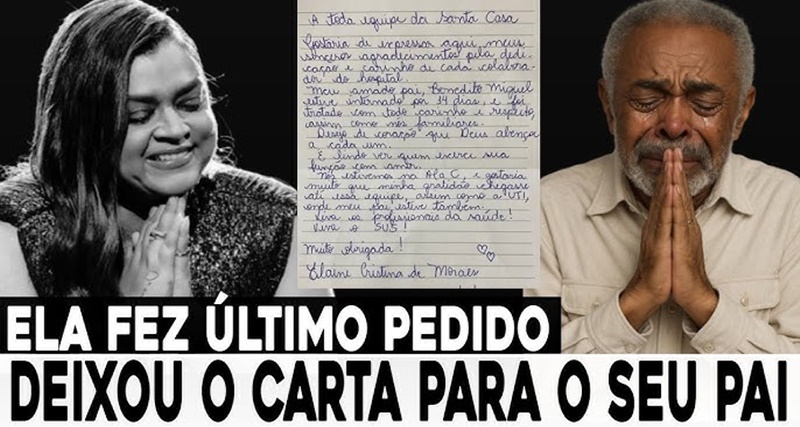 A toda equipe da Santa Casa
Gostaria de expressar aqui meus
sinceros agradecimentos pela dedi-
cação e carinho de cada colabora-
dor do hospital.
Meu amado pai, Benedito Miguel
esteve internado por 14 dias, e foi
tratado com todo carinho e respeito,
assim como nós familiares.
Desejo de coração que Deus abençoe
a cada um.
É lindo ver quem exerce sua
função com amor.
Nós estivemos na Ala C, e gostaria
muito que minha gratidão chegasse
até essa equipe, assim como a UTI,
onde meu pai esteve também.
Viva os profissionais da saúde!
Viva o SUS!
Muito obrigada!
Elaine Cristina de Moraes
ELA FEZ ÚLTIMO PEDIDO
DEIXOU O CARTA PARA O SEU PAI